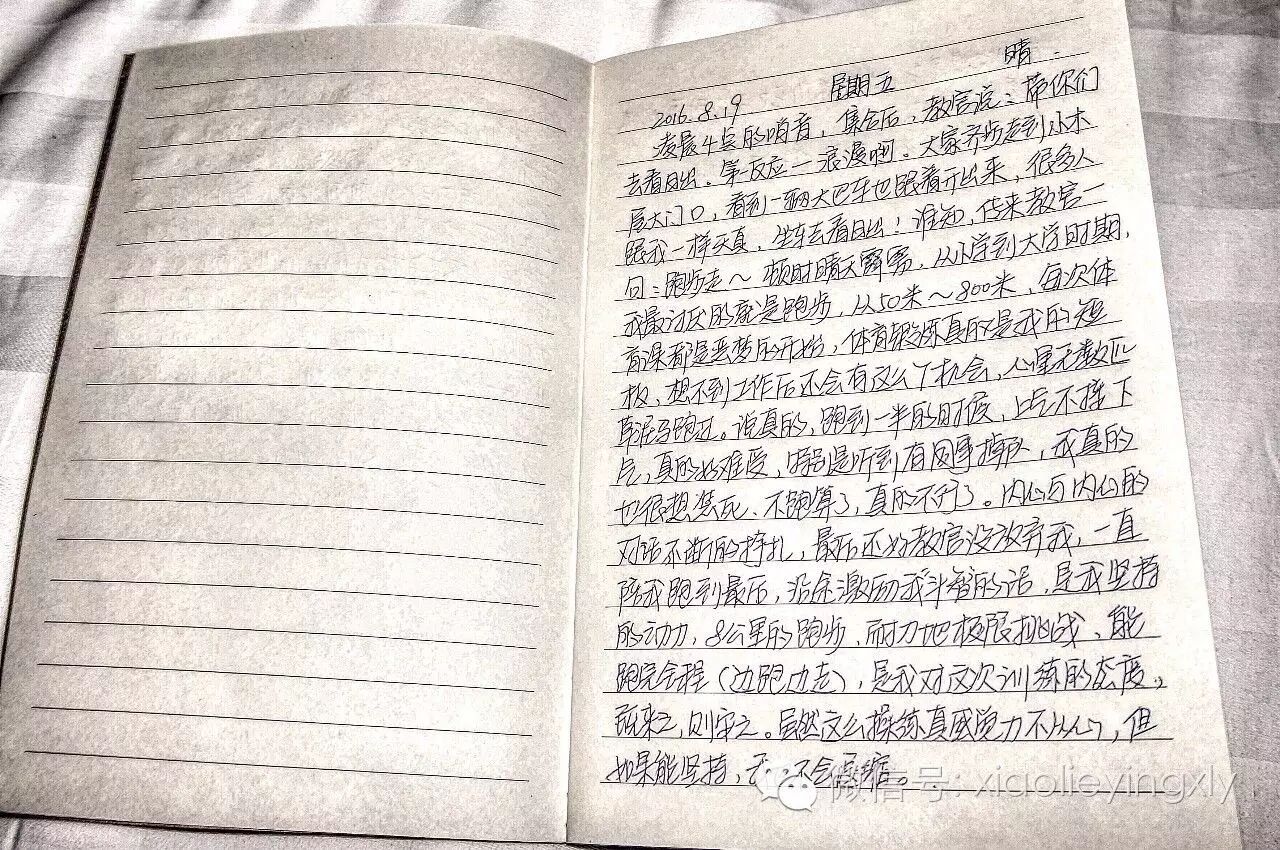 2016.8.19 星期五 晴
凌晨4点的哨音，集合后，教官说：带你们
去看日出。第一反应—浪漫啊。大家齐步走到小木
屋大门口，看到一辆大巴车也跟着开出来，很多人
跟我一样天真，坐车去看日出！谁知，传来教官一
句：跑步走～ 顿时晴天霹雳，从小学到大学时期，
我最讨厌的就是跑步，从50米～800米，每次体
育课都是恶梦的开始，体育锻炼真的是我的短
板，想不到工作后还会有这么个机会，心里无数匹
草泥马跑过。说真的，跑到一半的时候，上气不接下
气，真的好难受，特别是听到有同事掉队，我真的
也很想装死、不跑算了，真的不行了。内心与内心的
对话不断的挣扎，最后还好教官没放弃我，一直
陪我跑到最后，沿途激励我斗智的话，是我坚持
的动力，8公里的跑步，耐力地极限挑战，能
跑完全程（边跑边走），是我对这次训练的态度。
既来之，则安之。虽然这么操练真感觉力不从心，但
如果能坚持，不会退缩。
微信号: xiaolieyingxly